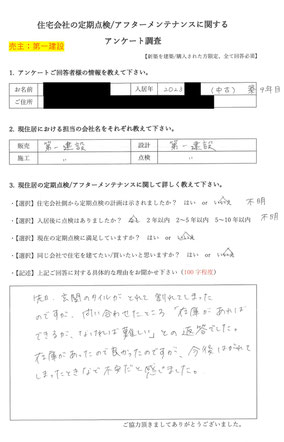 住宅会社の定期点検/アフターメンテナンスに関する
アンケート調査
売主：第一建設
【新築を建築/購入された方限定、全て回答必須】
1. アンケートご回答者様の情報を教えて下さい。
お名前 入居年 2023 (中古) 築9年目
ご住所
2. 現住居における担当の会社名をそれぞれ教えて下さい。
販売 第一建設 設計 第一建設
施工 〃 点検 〃
3. 現住居の定期点検/アフターメンテナンスに関して詳しく教えて下さい。
・【選択】住宅会社側から定期点検の計画は示されましたか？ はい or いいえ 不明
・【選択】入居後に点検はありましたか？ 2年以内 2〜5年以内 5〜10年以内 不明
・【選択】現在の定期点検に満足していますか？ はい or いいえ
・【選択】同じ会社で住宅を建てたい/買いたいと思いますか？ はい or いいえ
・【記述】上記ご回答に対する具体的な理由をお聞かせ下さい（100字程度）
先日、玄関のタイルがとれて割れてしまった
のですが、問い合わせたところ「在庫があれば
できるが、なければ難しい」との返答でした。
在庫があったので良かったのですが、今後はがれて
しまったときなど不安だと感じました。
ご協力頂きましてありがとうございました。